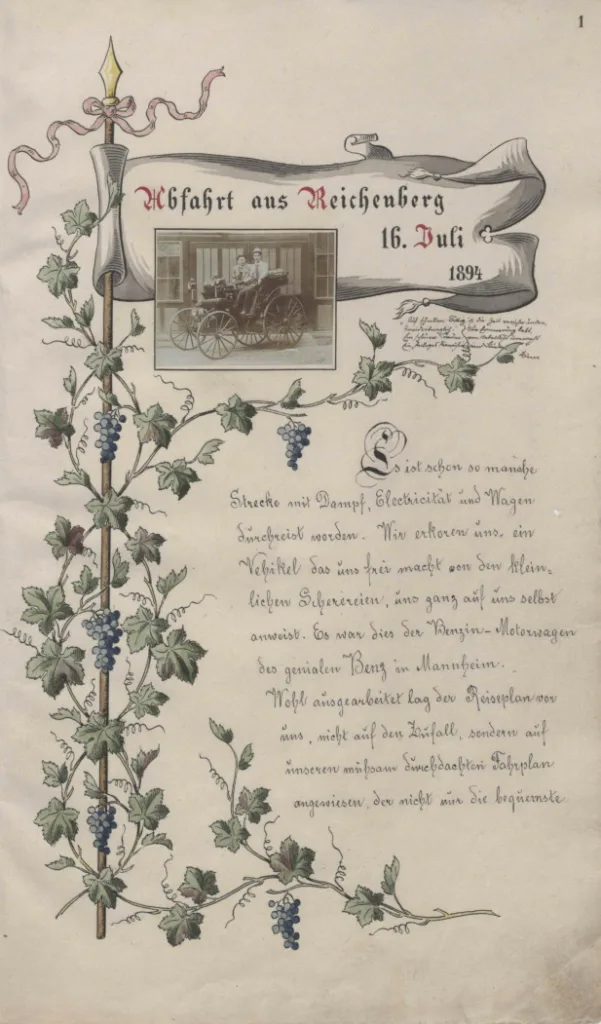 1
Abfahrt aus Reichenberg
16. Juli
1894
Es ist schon so manche
Strecke mit Dampf, Electricität und Wagen
durchreist worden. Wir erkoren uns, ein
Vehikel das uns frei macht von den klein-
lichen Scherereien, uns ganz auf uns selbst
anweist. Es war dies der Benzin-Motorwagen
des genialen Benz in Mannheim.
Wohl ausgearbeitet lag der Reiseplan vor
uns, nicht auf den Zufall, sondern auf
unseren mühsam durchdachten Fahrplan
angewiesen, der nicht nur die bequemste